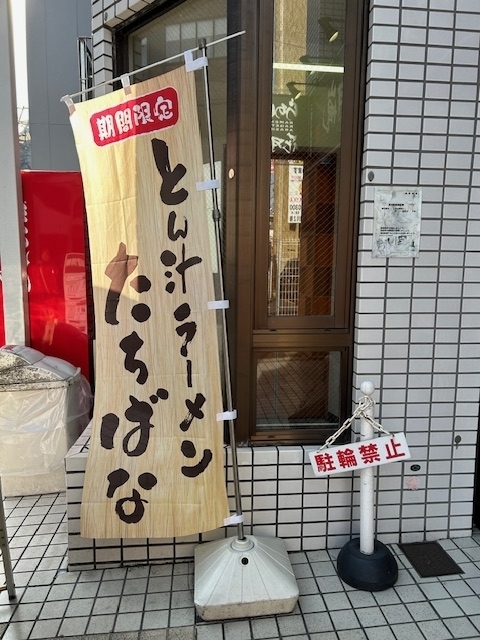 期間限定
とん汁ラーメン
たちばな
駐輪禁止